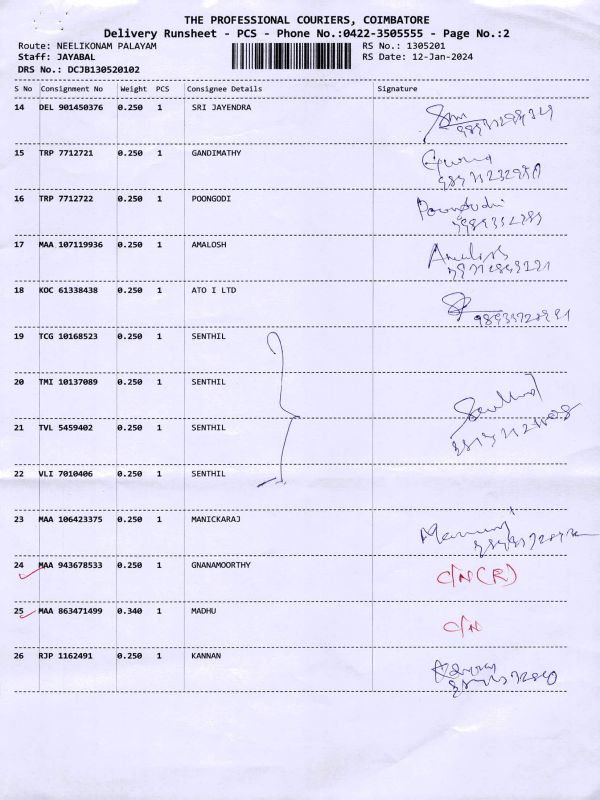 THE PROFESSIONAL COURIERS, COIMBATORE
Delivery Runsheet - PCS - Phone No.:0422-3505555 - Page No.:2
Route: NEELIKONAM PALAYAM RS No.: 1305201
Staff: JAYABAL RS Date: 12-Jan-2024
DRS No.: DCJB130520102
S No Consignment No Weight PCS Consignee Details Signature
14 DEL 901450376 0.250 1 SRI JAYENDRA
15 TRP 7712721 0.250 1 GANDIMATHY
16 TRP 7712722 0.250 1 POONGODI Poongodi
17 MAA 107119936 0.250 1 AMALOSH
18 KOC 61338438 0.250 1 ATO I LTD
19 TCG 10168523 0.250 1 SENTHIL
20 TMI 10137089 0.250 1 SENTHIL
21 TVL 5459402 0.250 1 SENTHIL
22 VLI 7010406 0.250 1 SENTHIL
23 MAA 106423375 0.250 1 MANICKARAJ
24 MAA 943678533 0.250 1 GNANAMOORTHY C/N (R)
25 MAA 863471499 0.340 1 MADHU C/N
26 RJP 1162491 0.250 1 KANNAN